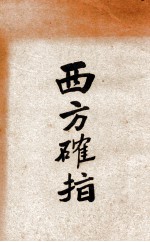 西方確指